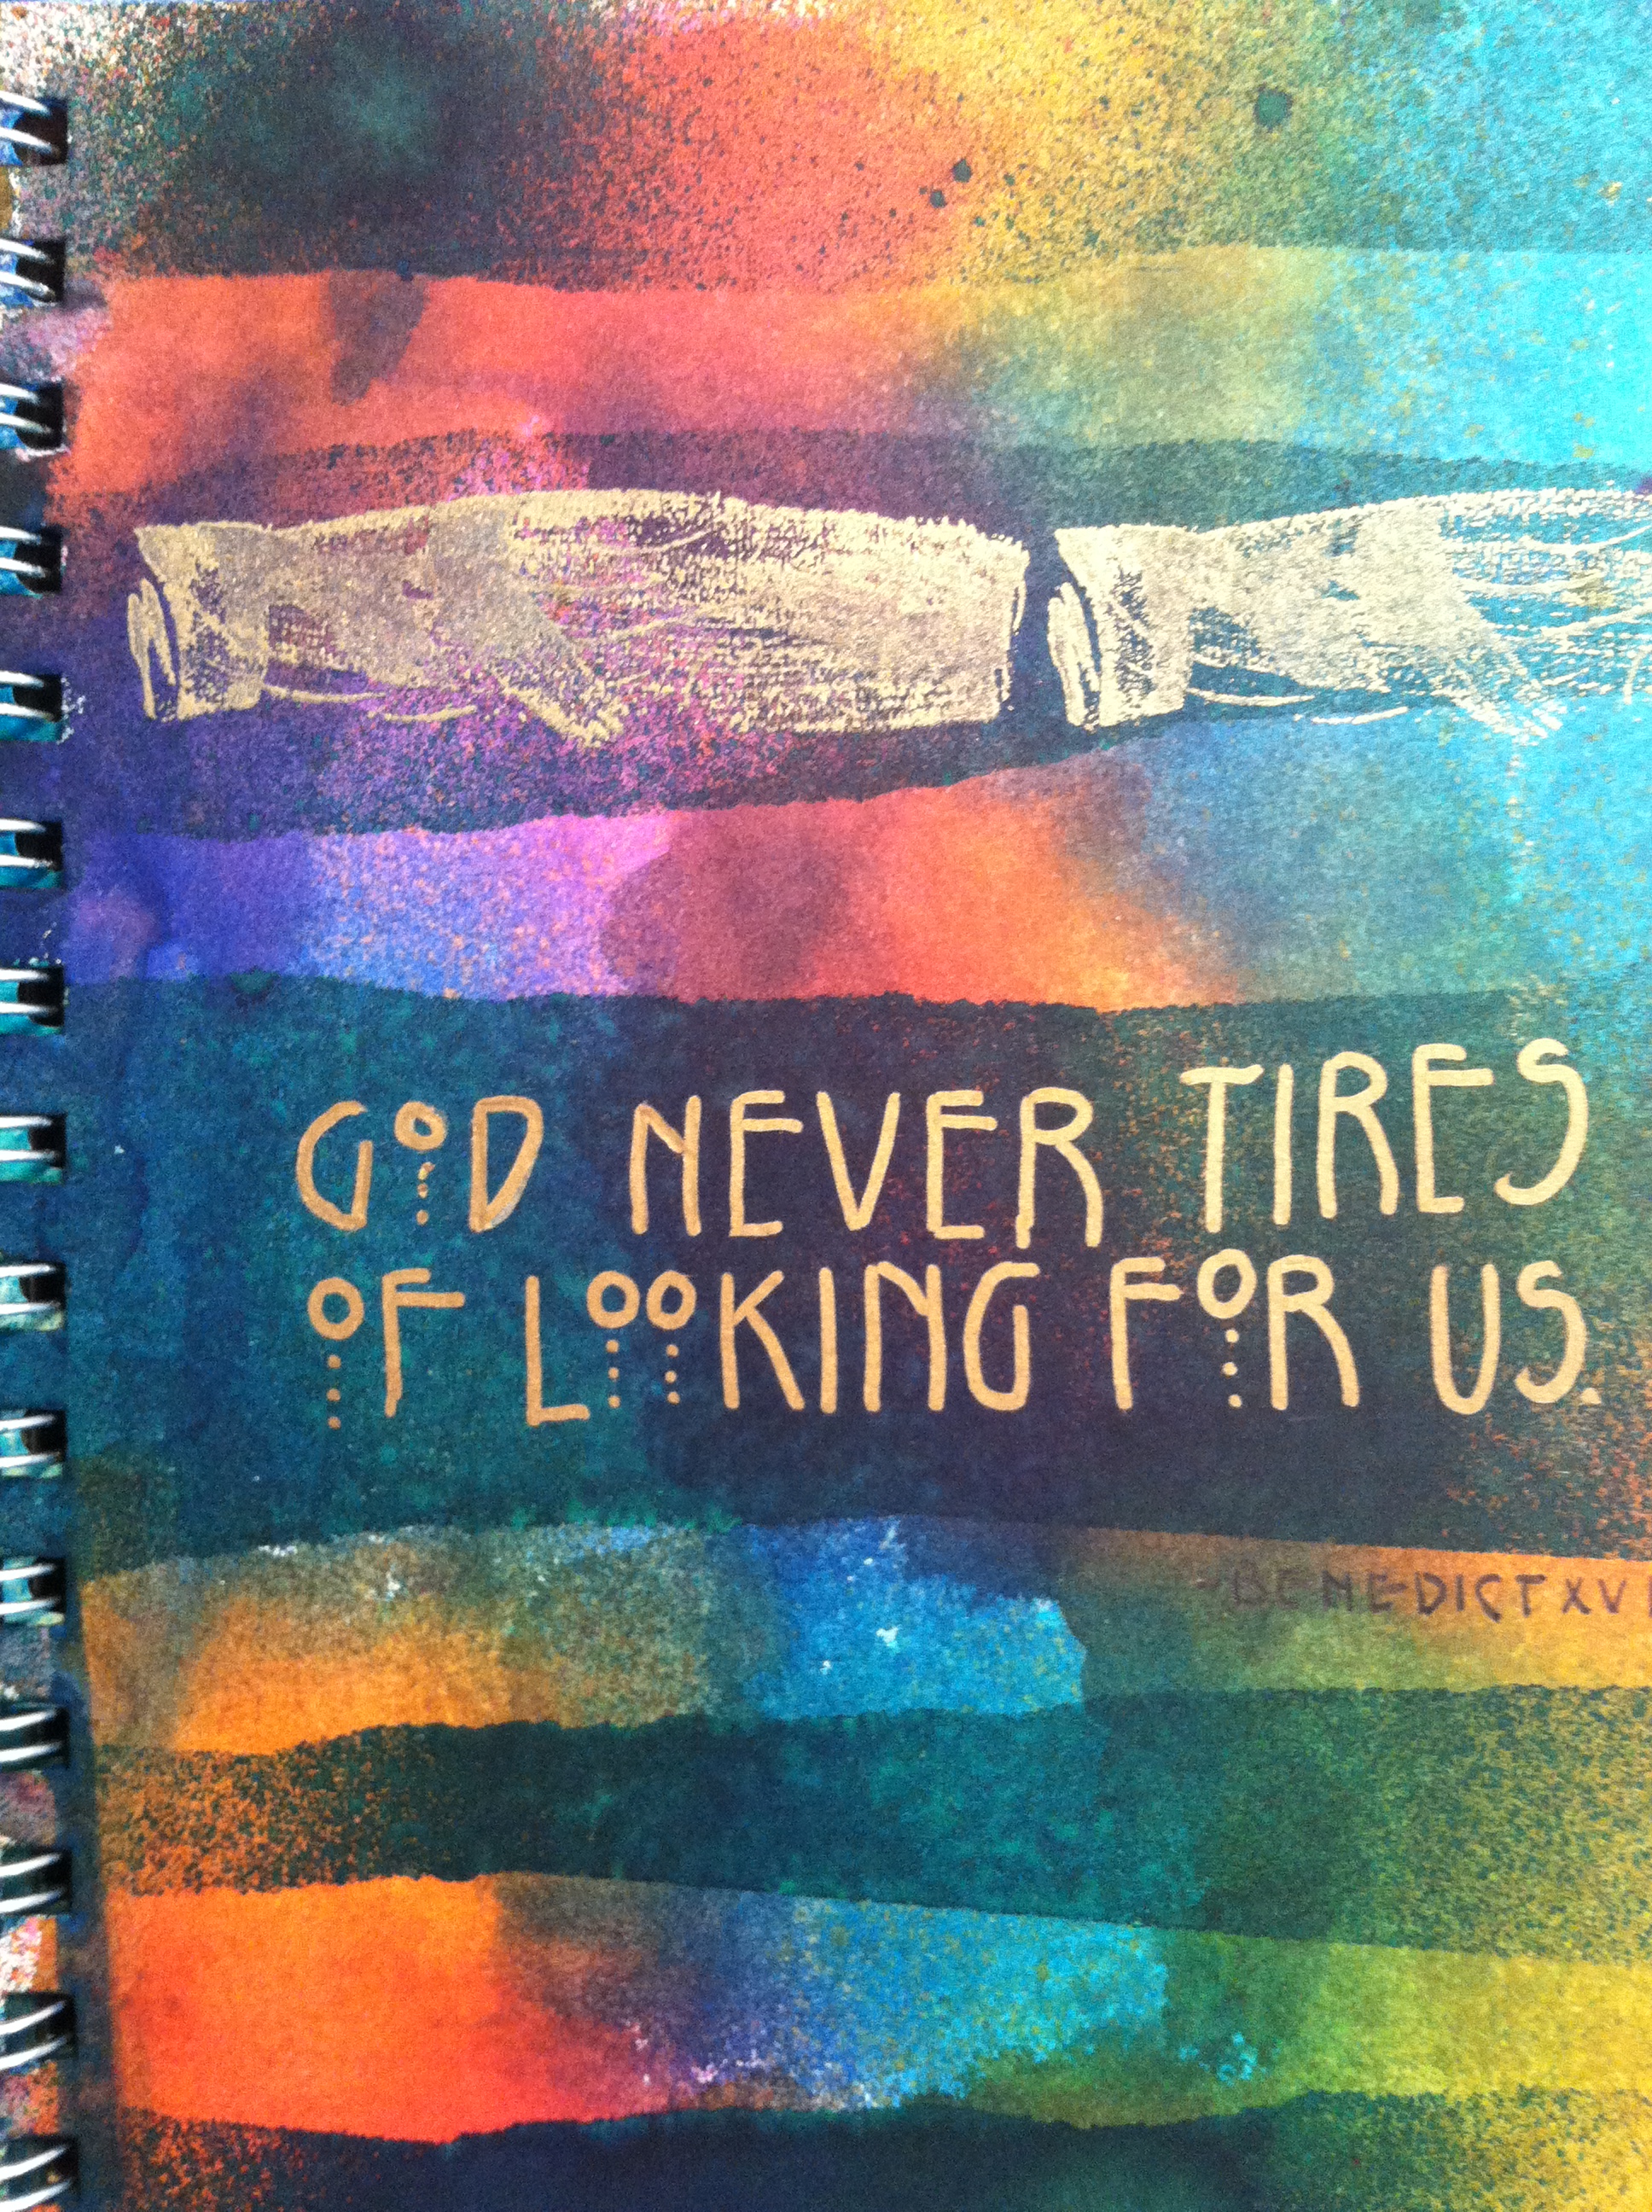 GOD NEVER TIRES
OF LOOKING FOR US.
- BENEDICT XV